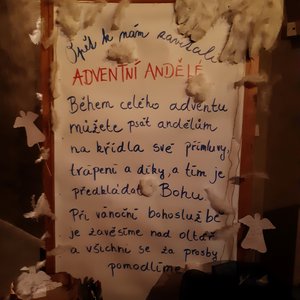 Opět k nám zavítali
ADVENTNÍ ANDĚLÉ
Během celého adventu
můžete psát andělům
na křídla své přímluvy,
trápení a díky, a tím je
předkládat Bohu.
Při vánoční bohoslužbě
je zavěsíme nad oltář
a všichni se za prosby
pomodlíme!